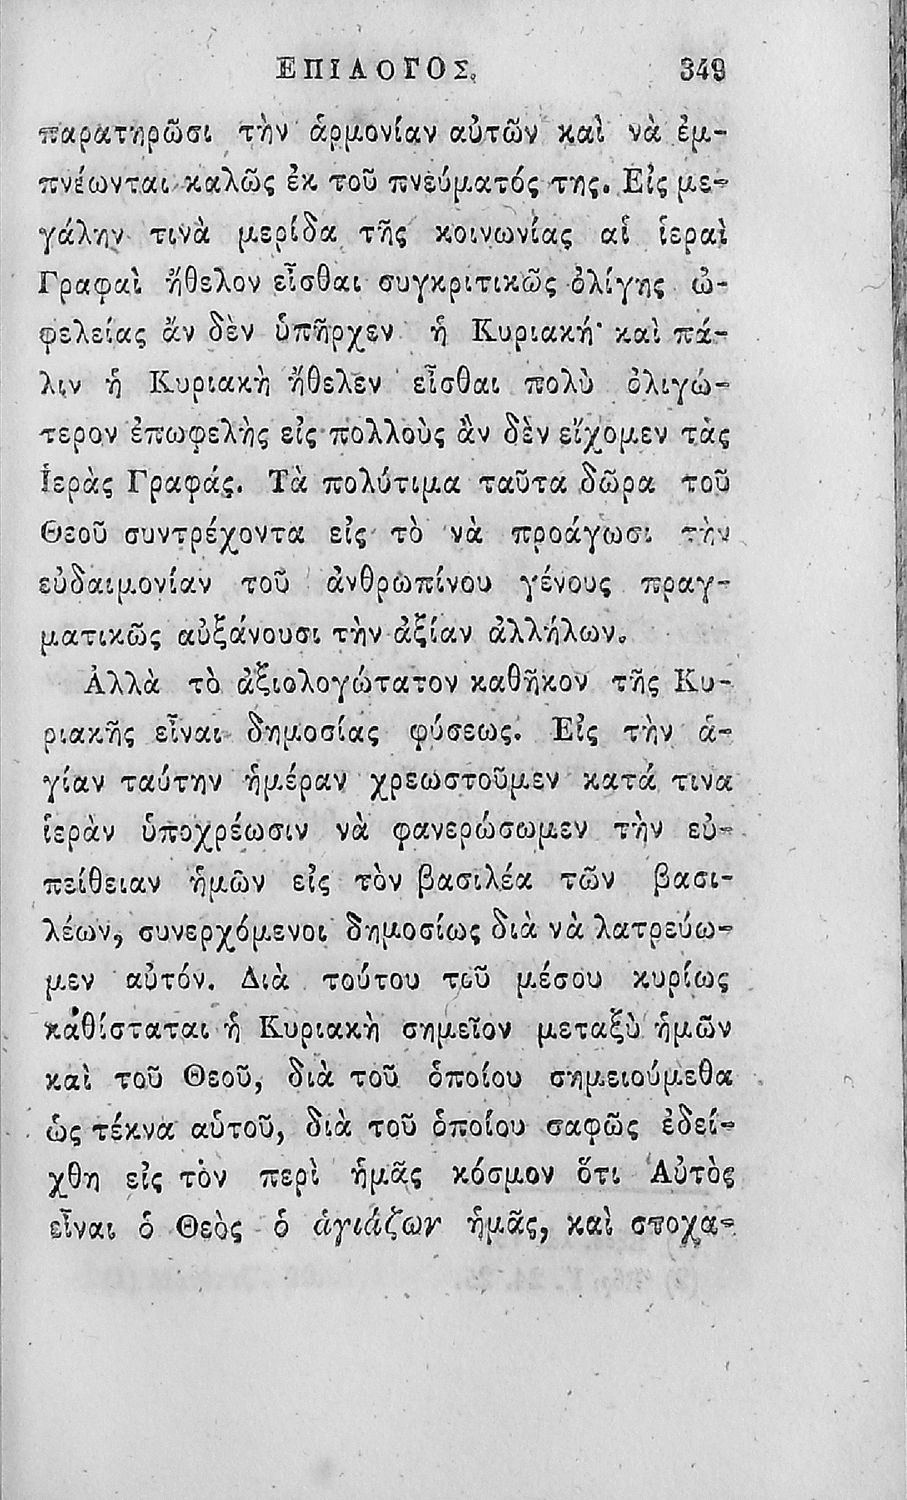 ΕΠΙΛΟΓΟΣ. 349
παρατηρῶσι τὴν ἁρμονίαν αὐτῶν καὶ νὰ ἐμ-
πνέωνται καλῶς ἐκ τοῦ πνεύματός της. Εἰς με-
γάλην τινὰ μερίδα τῆς κοινωνίας αἱ ἱεραὶ
Γραφαὶ ἤθελον εἶσθαι συγκριτικῶς ὀλίγης ὠ-
φελείας ἄν δὲν ὑπῆρχεν ἡ Κυριακή· καὶ πά-
λιν ἡ Κυριακὴ ἤθελεν εἶσθαι πολὺ ὀλιγώ-
τερον ἐπωφελὴς εἰς πολλοὺς ἂν δὲν εἴχομεν τὰς
Ἱερὰς Γραφάς. Τὰ πολύτιμα ταῦτα δῶρα τοῦ
Θεοῦ συντρέχοντα εἰς τὸ νὰ προάγωσι τὴν
εὐδαιμονίαν τοῦ ἀνθρωπίνου γένους πραγ-
ματικῶς αὐξάνουσι τὴν ἀξίαν ἀλλήλων.
Ἀλλὰ τὸ ἀξιολογώτατον καθῆκον τῆς Κυ-
ριακῆς εἶναι δημοσίας φύσεως. Εἰς τὴν ἁ-
γίαν ταύτην ἡμέραν χρεωστοῦμεν κατά τινα
ἱερὰν ὑποχρέωσιν νὰ φανερώσωμεν τὴν εὐ-
πείθειαν ἡμῶν εἰς τὸν βασιλέα τῶν βασι-
λέων, συνερχόμενοι δημοσίως διὰ νὰ λατρεύω-
μεν αὐτόν. Διὰ τούτου τοῦ μέσου κυρίως
καθίσταται ἡ Κυριακὴ σημεῖον μεταξὺ ἡμῶν
καὶ τοῦ Θεοῦ, διὰ τοῦ ὁποίου σημειούμεθα
ὡς τέκνα αὑτοῦ, διὰ τοῦ ὁποίου σαφῶς ἐδεί-
χθη εἰς τὸν περὶ ἡμᾶς κόσμον ὅτι Αὐτὸς
εἶναι ὁ Θεὸς ὁ ἁγιάζων ἡμᾶς, καὶ στοχα-